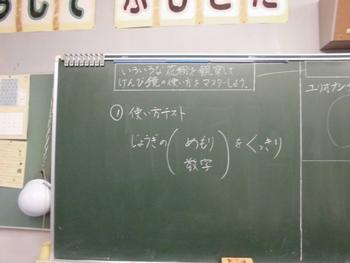 いろいろな花粉を観察して
けんび鏡の使い方をマスターしよう。
① 使い方テスト
じょうぎの(めもり 数字)をくっきり